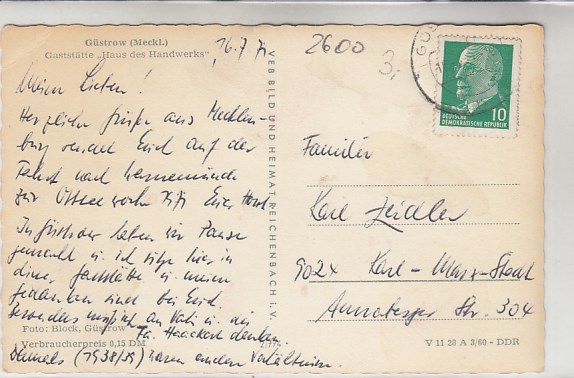 Güstrow (Meckl.)
Gaststätte „Haus des Handwerks"
16. 7. 71
Meine Lieben!
Herzliche Grüße aus Mecklen-
burg sendet Euch auf der
Fahrt nach Warnemünde
zur Ostseewoche Euer Horst
In Güstrow haben wir Pause
gemacht u. ich sitze hier in
dieser Gaststätte u. meine
Gedanken sind bei Euch.
Besonders muß ich an Vati u. die
Fa. denken.
Damals (1938/39) waren andere Verhältnisse.
Foto: Block, Güstrow
Verbraucherpreis 0,15 DM
VEB BILD UND HEIMAT REICHENBACH I. V.
2600
3,
DEUTSCHE
DEMOKRATISCHE REPUBLIK
10
Familie
Karl Zeidler
9024 Karl-Marx-Stadt
Annaberger Str. 304
V 11 28 A 3/60 - DDR